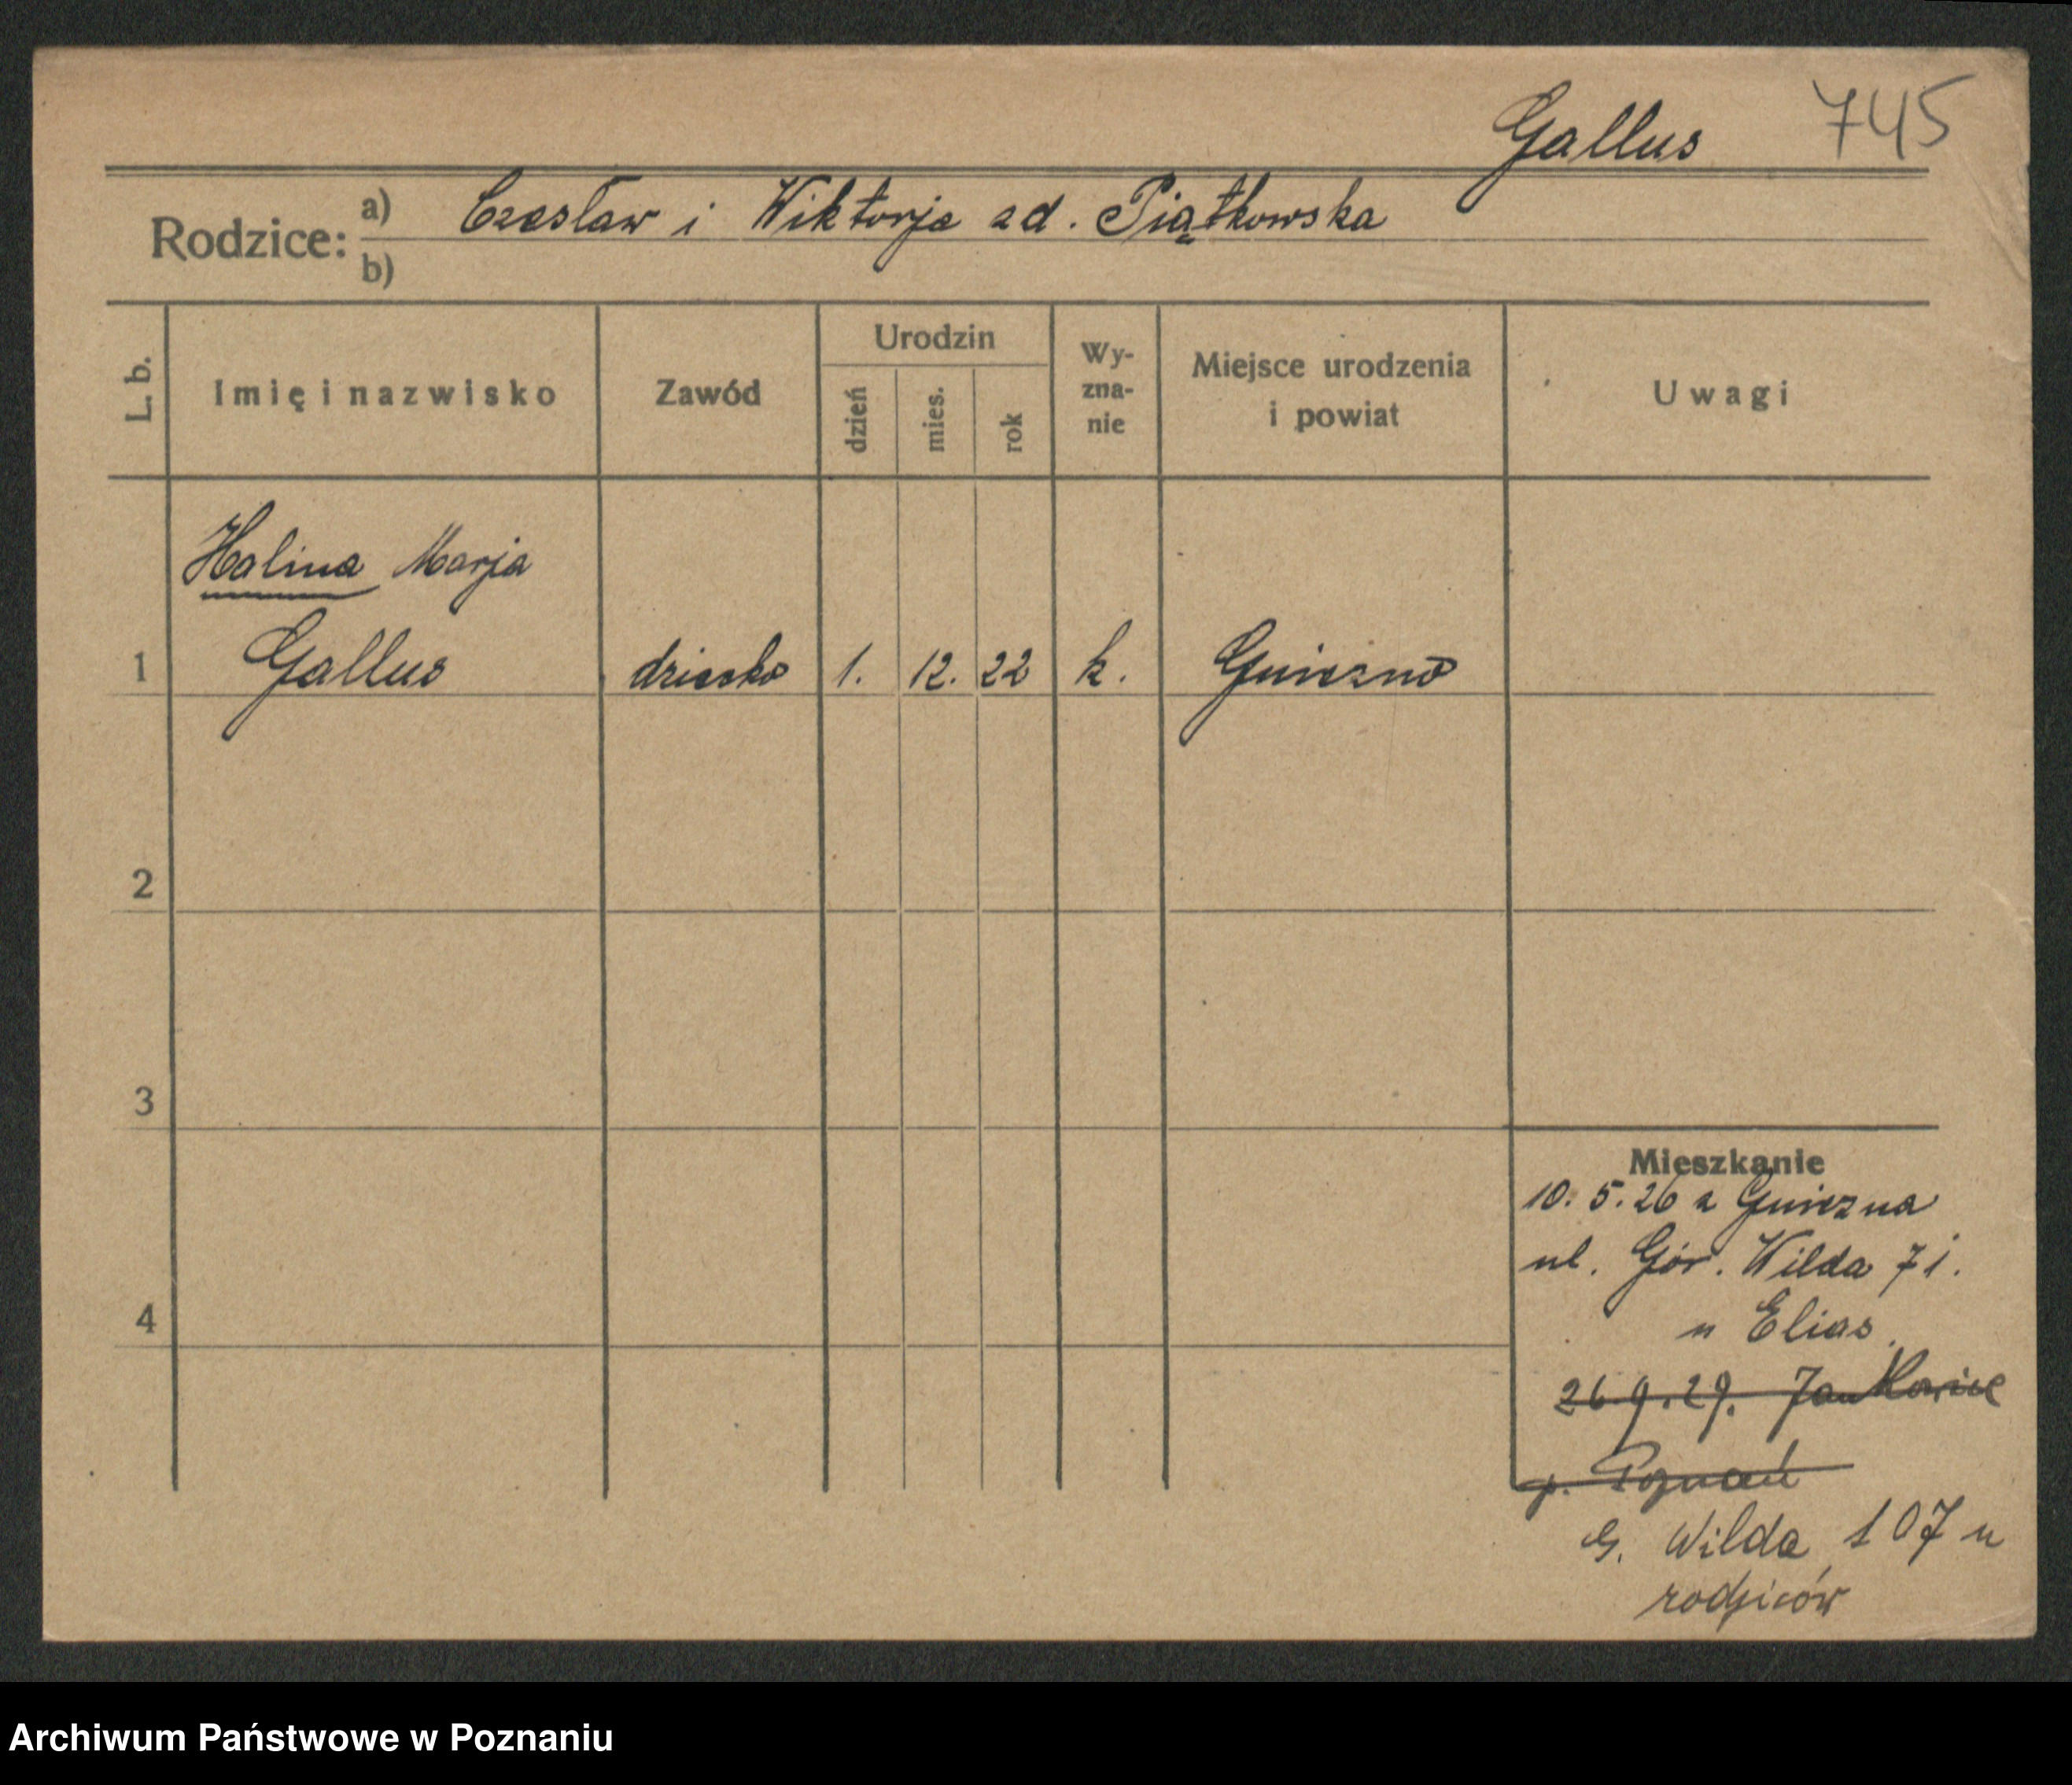 Gallus 745
Rodzice: a) Czesław i Wiktorja zd. Piątkowska
b)
L. b.
Imię i nazwisko
Zawód
Urodzin
dzień
mies.
rok
Wy-
zna-
nie
Miejsce urodzenia
i powiat
Uwagi
Halina Marja
1 Gallus dziecko 1. 12. 22 k. Gniezno
2
3
4
Mieszkanie
10. 5. 26 z Gniezna
ul. Gór. Wilda 71.
u Elias
26.9.29. Jankowice
p. Poznań
G. Wilda 107 u
rodziców
Archiwum Państwowe w Poznaniu